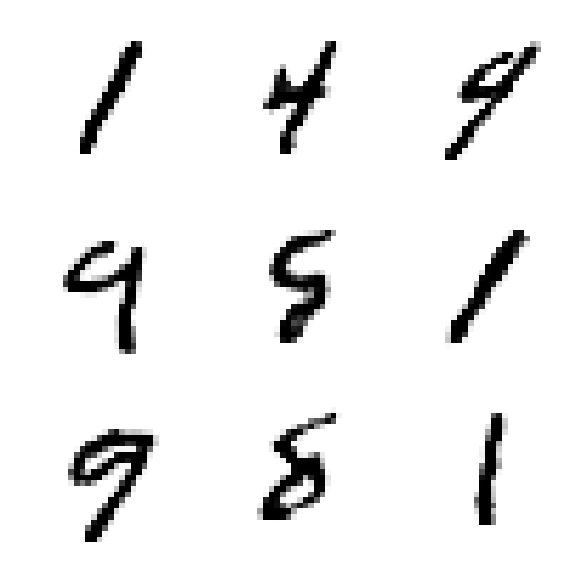 1 4 9
9 5 1
9 5 1